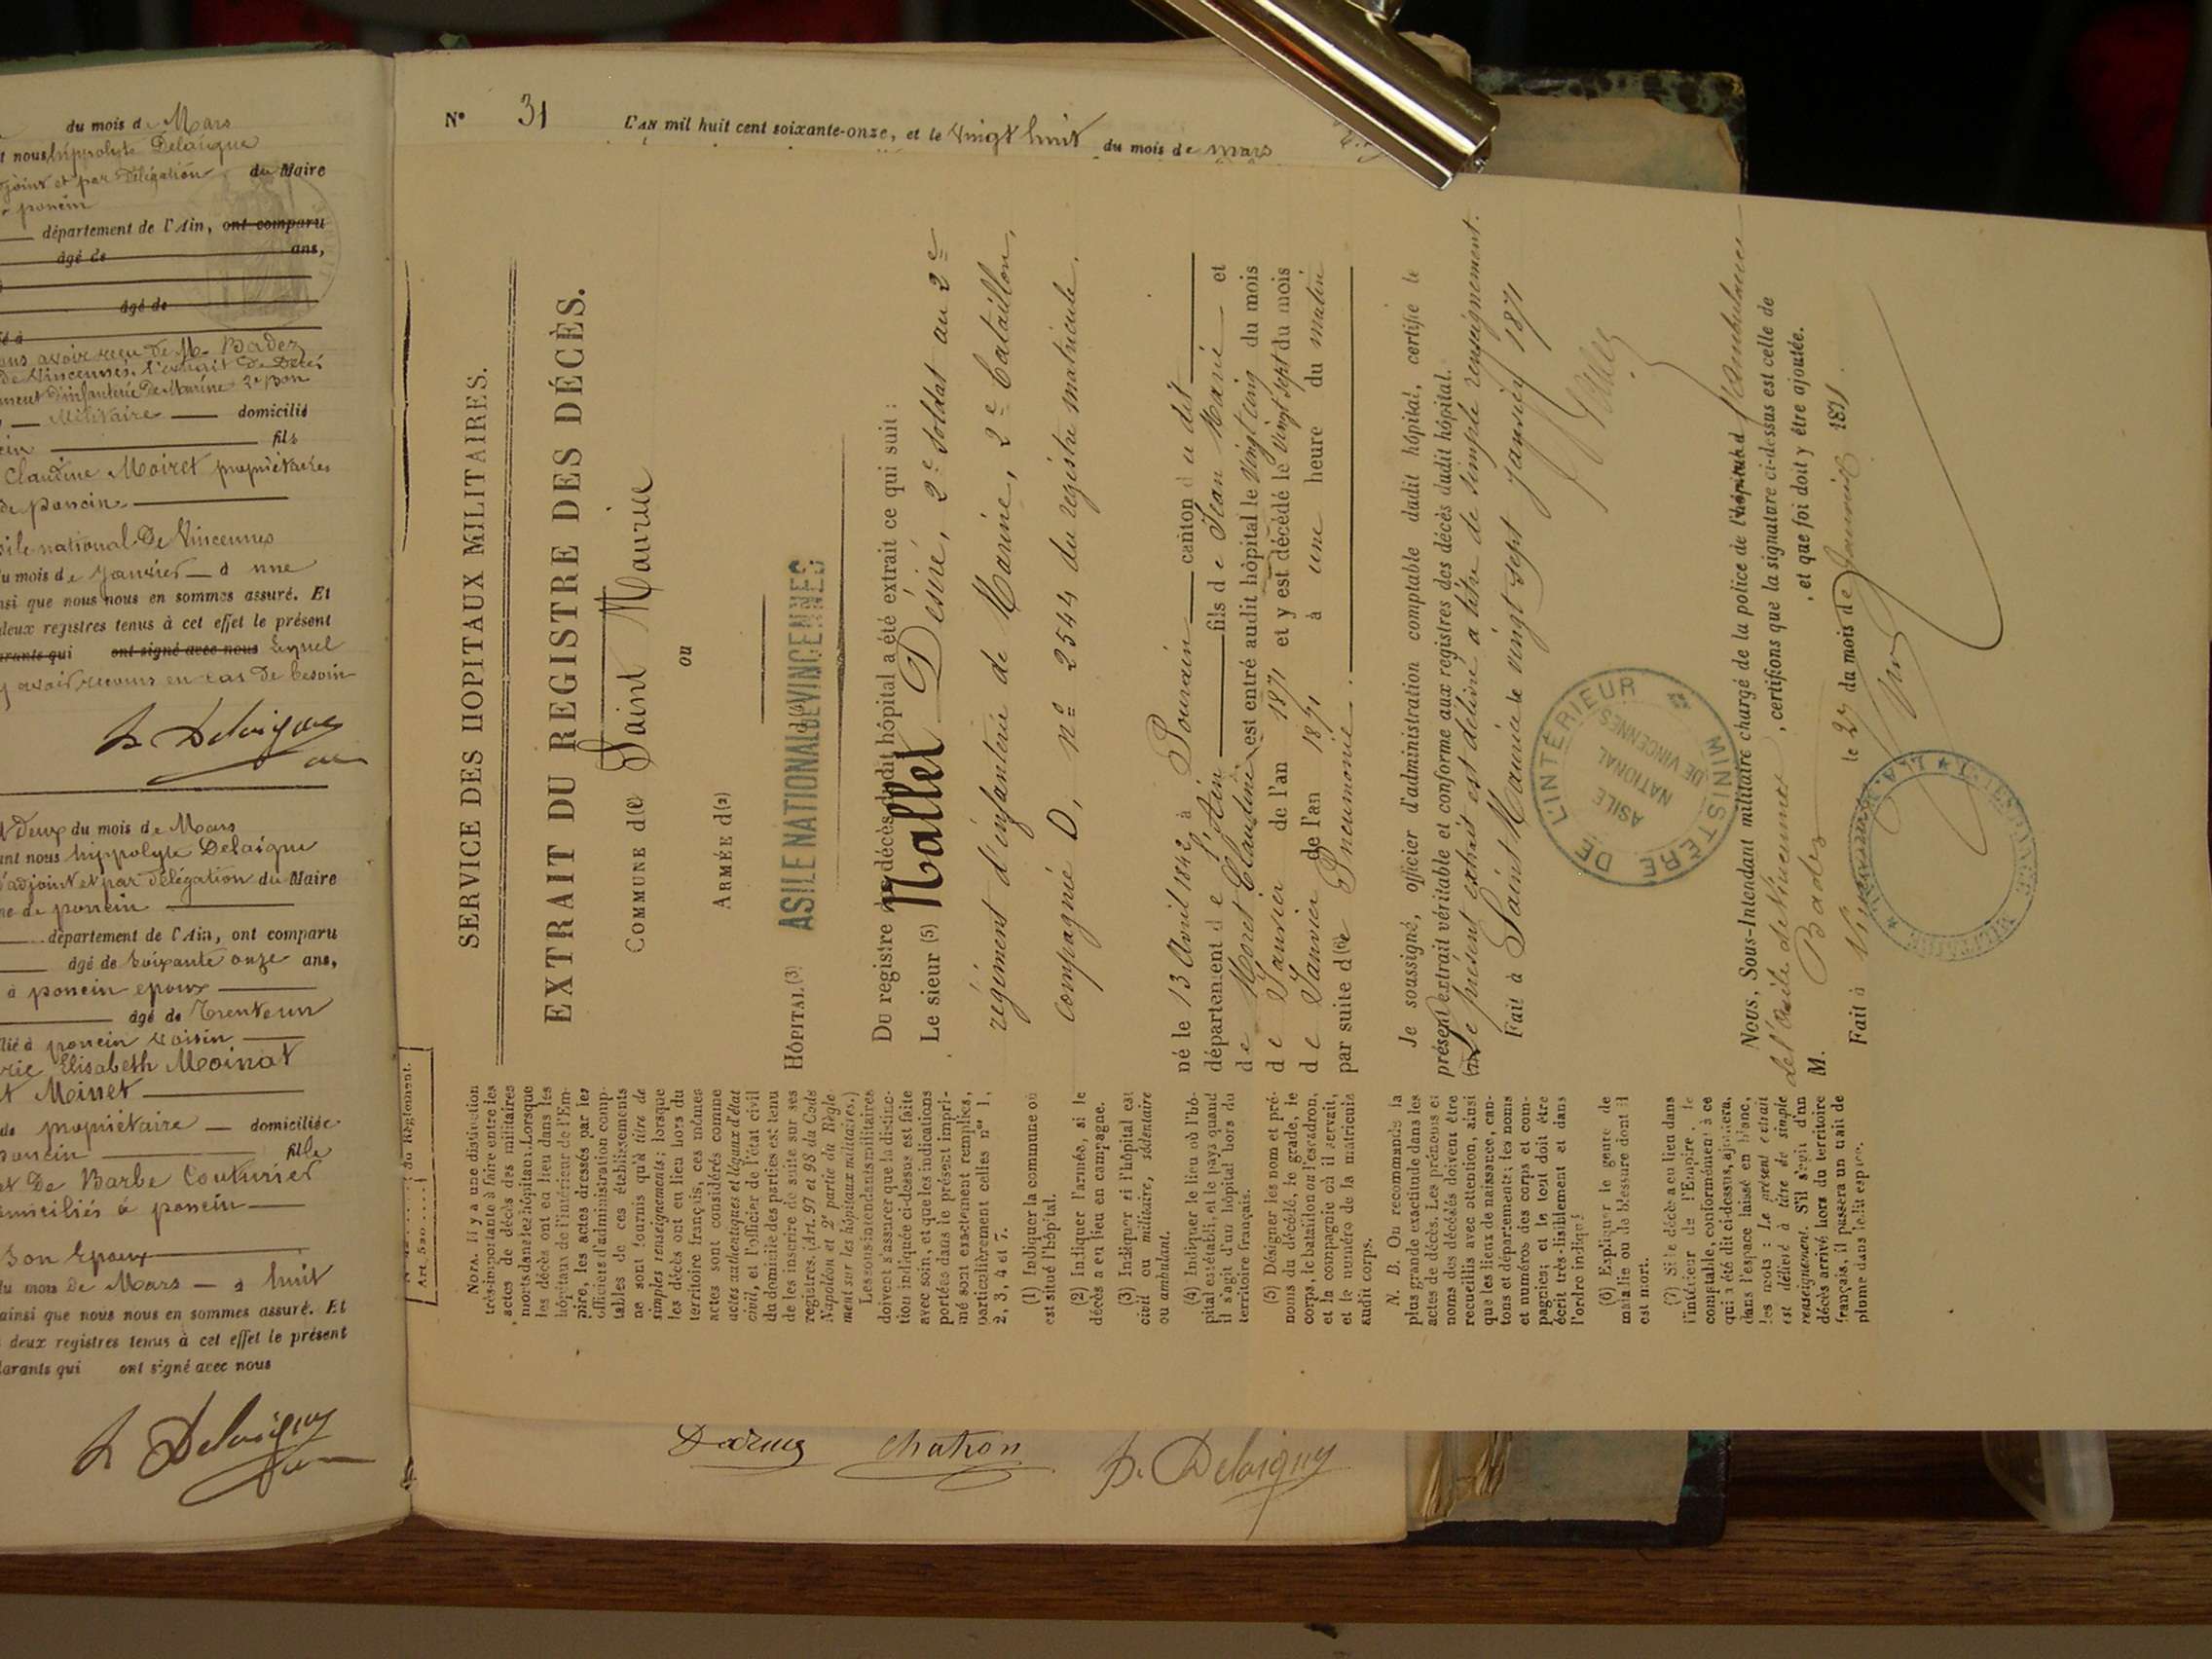 du mois de Mars
nous hippolyte Delaigue
joint et par Délégation du Maire
poncin
département de l'Ain, ont comparu
âgé de ans,
âgé de
avoir reçu de M. Badez
de Vincennes. l'extrait de Décès
d'infanterie De Marine 2e Bon
Militaire domicilié
fils
Claudine Moiret propriétaires
de poncin
national De Vincennes
du mois de Janvier à une
nsi que nous nous en sommes assuré. Et
deux registres tenus à cet effet le présent
arants qui ont signé avec nous lequel
avoir recours en cas De besoin
h Delaigue
Deux du mois de Mars
ant nous hippolyte Delaigue
adjoint et par délégation du Maire
ne de poncin
département de l'Ain, ont comparu
âgé de soixante onze ans,
à poncin epoux
âgé de Trente un
lié à poncin voisin
rie Elisabeth Moinat
Minet
de propriétaire domiciliée
poncin fille
et De Barbe Couturier
omiciliés à poncin
Son Epoux
du mois De Mars à huit
ainsi que nous nous en sommes assuré. Et
deux registres tenus à cet effet le présent
larants qui ont signé avec nous
h Delaigue
N° 31 L'AN mil huit cent soixante-onze, et le vingt huit du mois de mars
Art. 520 du Règlement.
SERVICE DES HOPITAUX MILITAIRES.
EXTRAIT DU REGISTRE DES DÉCÈS.
COMMUNE de Saint Maurice
ou
ARMÉE d(2)
HÔPITAL (3) ASILE NATIONAL DE VINCENNES
Du registre des décès dudit hôpital a été extrait ce qui suit :
Le sieur (5) Mallet Désiré, 2e soldat au 2e
régiment d'infanterie de Marine, 2e bataillon,
compagnie D, no 2544 du registre matricule.
né le 13 Avril 1842 à Poncin canton du dit
département de l'Ain fils de Jean Marie et
de Moret Claudine est entré audit hôpital le Vingt cinq du mois
de Janvier de l'an 1871 et y est décédé le Vingt sept du mois
de Janvier de l'an 1871 à une heure du matin
par suite de(6) Pneumonie.
Je soussigné, officier d'administration comptable dudit hôpital, certifie le
présent extrait véritable et conforme aux registres des décès dudit hôpital.
(7) Le présent extrait est délivré à titre de simple renseignement.
Fait à Saint Maurice le vingt sept Janvier 1871
MINISTÈRE DE L'INTÉRIEUR
ASILE
NATIONAL
DE VINCENNES
Nous, Sous-Intendant militaire chargé de la police de l'hôpital l'ambulance
de l'Asile de Vincennes, certifions que la signature ci-dessus est celle de
M. Badez, et que foi doit y être ajoutée.
Fait à Vincennes le 27 du mois de Janvier 1871.
NOTA. Il y a une distinction
très-importante à faire entre les
actes de décès des militaires
morts dans les hôpitaux. Lorsque
les décès ont eu lieu dans les
hôpitaux de l'intérieur de l'Em-
pire, les actes dressés par les
officiers d'administration comp-
tables de ces établissements
ne sont fournis qu'à titre de
simples renseignements ; lorsque
les décès ont eu lieu hors du
territoire français, ces mêmes
actes sont considérés comme
actes authentiques et légaux d'état
civil, et l'officier de l'état civil
du domicile des parties est tenu
de les inscrire de suite sur ses
registres. (Art. 97 et 98 du Code
Napoléon et 2e partie du Règle-
ment sur les hôpitaux militaires.)
Les sous-intendants militaires
doivent s'assurer que la distinc-
tion indiquée ci-dessus est faite
avec soin, et que les indications
portées dans le présent impri-
mé sont exactement remplies,
particulièrement celles nos 1,
2, 3, 4 et 7.
(1) Indiquer la commune où
est situé l'hôpital.
(2) Indiquer l'armée, si le
décès a eu lieu en campagne.
(3) Indiquer si l'hôpital est
civil ou militaire, sédentaire
ou ambulant.
(4) Indiquer le lieu où l'hô-
pital est établi, et le pays quand
il s'agit d'un hôpital hors du
territoire français.
(5) Désigner les nom et pré-
noms du décédé, le grade, le
corps, le bataillon ou l'escadron,
et la compagnie où il servait,
et le numéro de la matricule
audit corps.
N. B. On recommande la
plus grande exactitude dans les
actes de décès. Les prénoms et
noms des décédés doivent être
recueillis avec attention, ainsi
que les lieux de naissance, can-
tons et départements ; les noms
et numéros des corps et com-
pagnies ; et le tout doit être
écrit très-lisiblement et dans
l'ordre indiqué
(6) Expliquer le genre de
maladie ou la blessure dont il
est mort.
(7) Si le décès a eu lieu dans
l'intérieur de l'Empire, le
comptable, conformément à ce
qui a été dit ci-dessus, ajoutera,
dans l'espace laissé en blanc,
les mots : Le présent extrait
est délivré à titre de simple
renseignement. S'il s'agit d'un
décès arrivé hors du territoire
français, il passera un trait de
plume dans ledit espace.
Chatron h. Delaigue